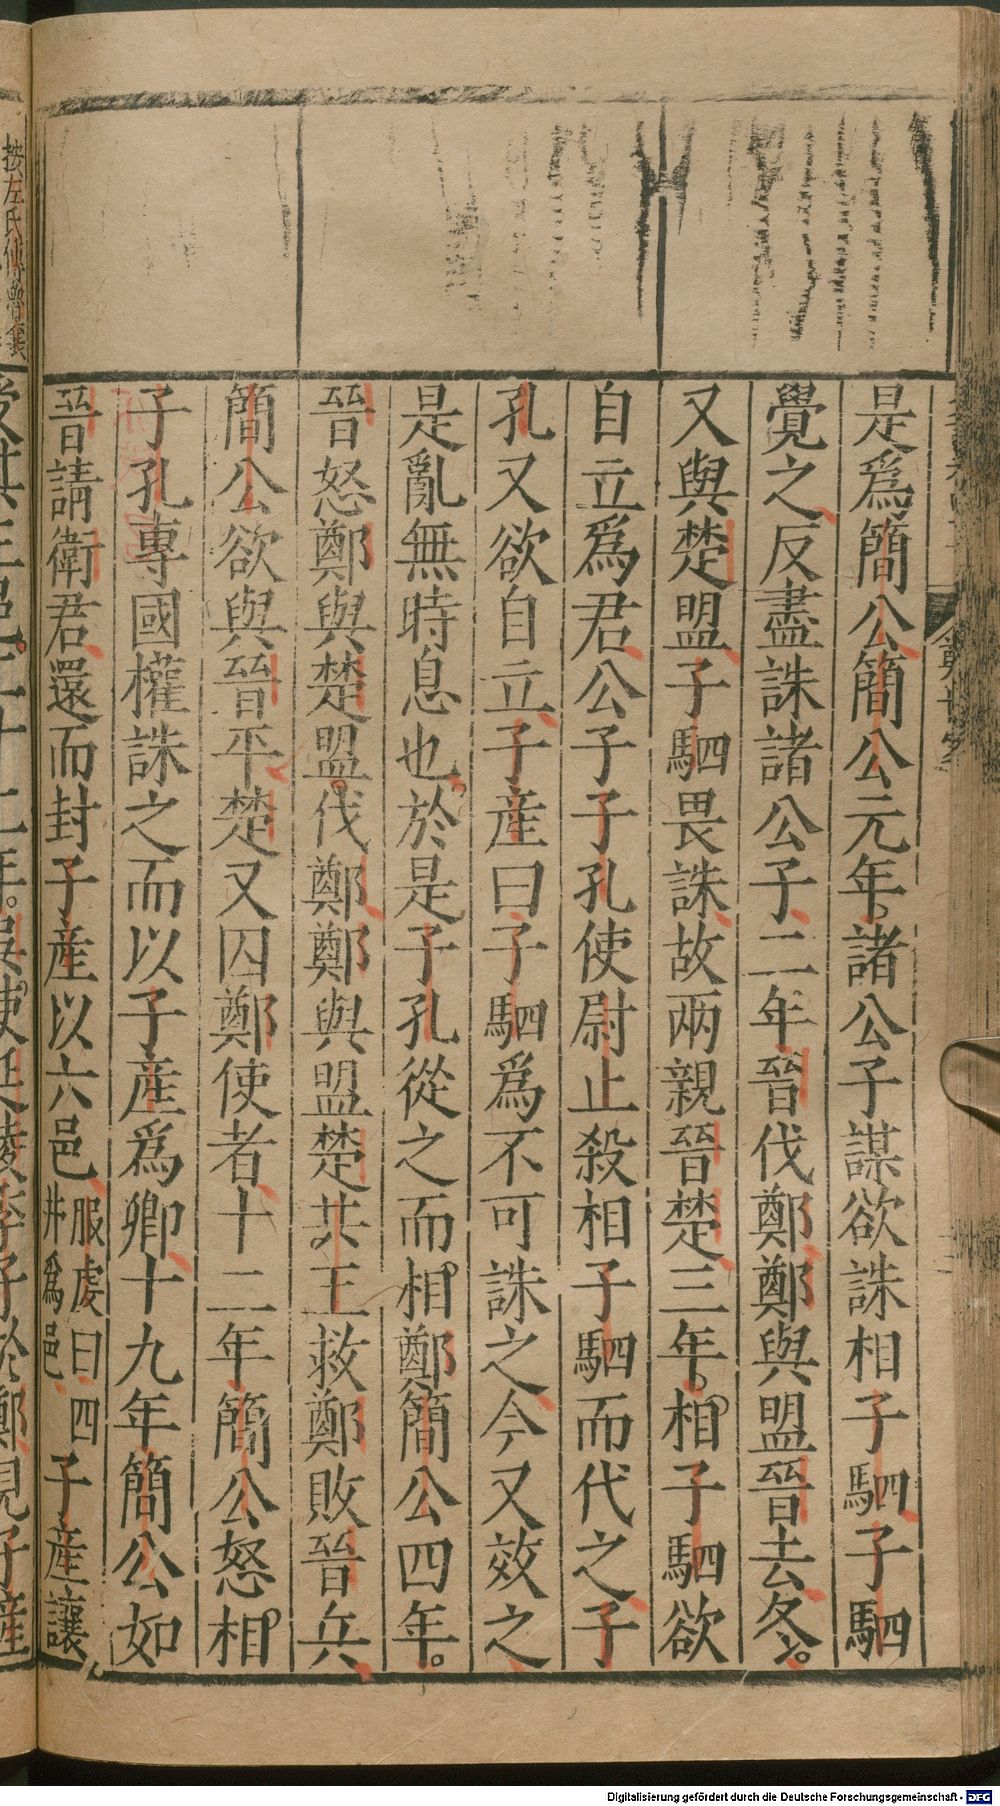 是爲簡公簡公元年諸公子謀欲誅相子駟子駟
覺之反盡誅諸公子二年晉伐鄭鄭與盟晉去冬
又與楚盟子駟畏誅故兩親晉楚三年相子駟欲
自立爲君公子子孔使尉止殺相子駟而代之子
孔又欲自立子產曰子駟爲不可誅之今又效之
是亂無時息也於是子孔從之而相鄭簡公四年
晉怒鄭與楚盟伐鄭鄭與盟楚共王救鄭敗晉兵
簡公欲與晉平楚又囚鄭使者十二年簡公怒相
子孔專國權誅之而以子產爲卿十九年簡公如
晉請衛君還而封子產以六邑服虔曰四井爲邑子產讓
受其三邑二十二年吳使延陵季子於鄭見子產
按左氏傳
Digitalisierung gefördert durch die Deutsche Forschungsgemeinschaft - DFG